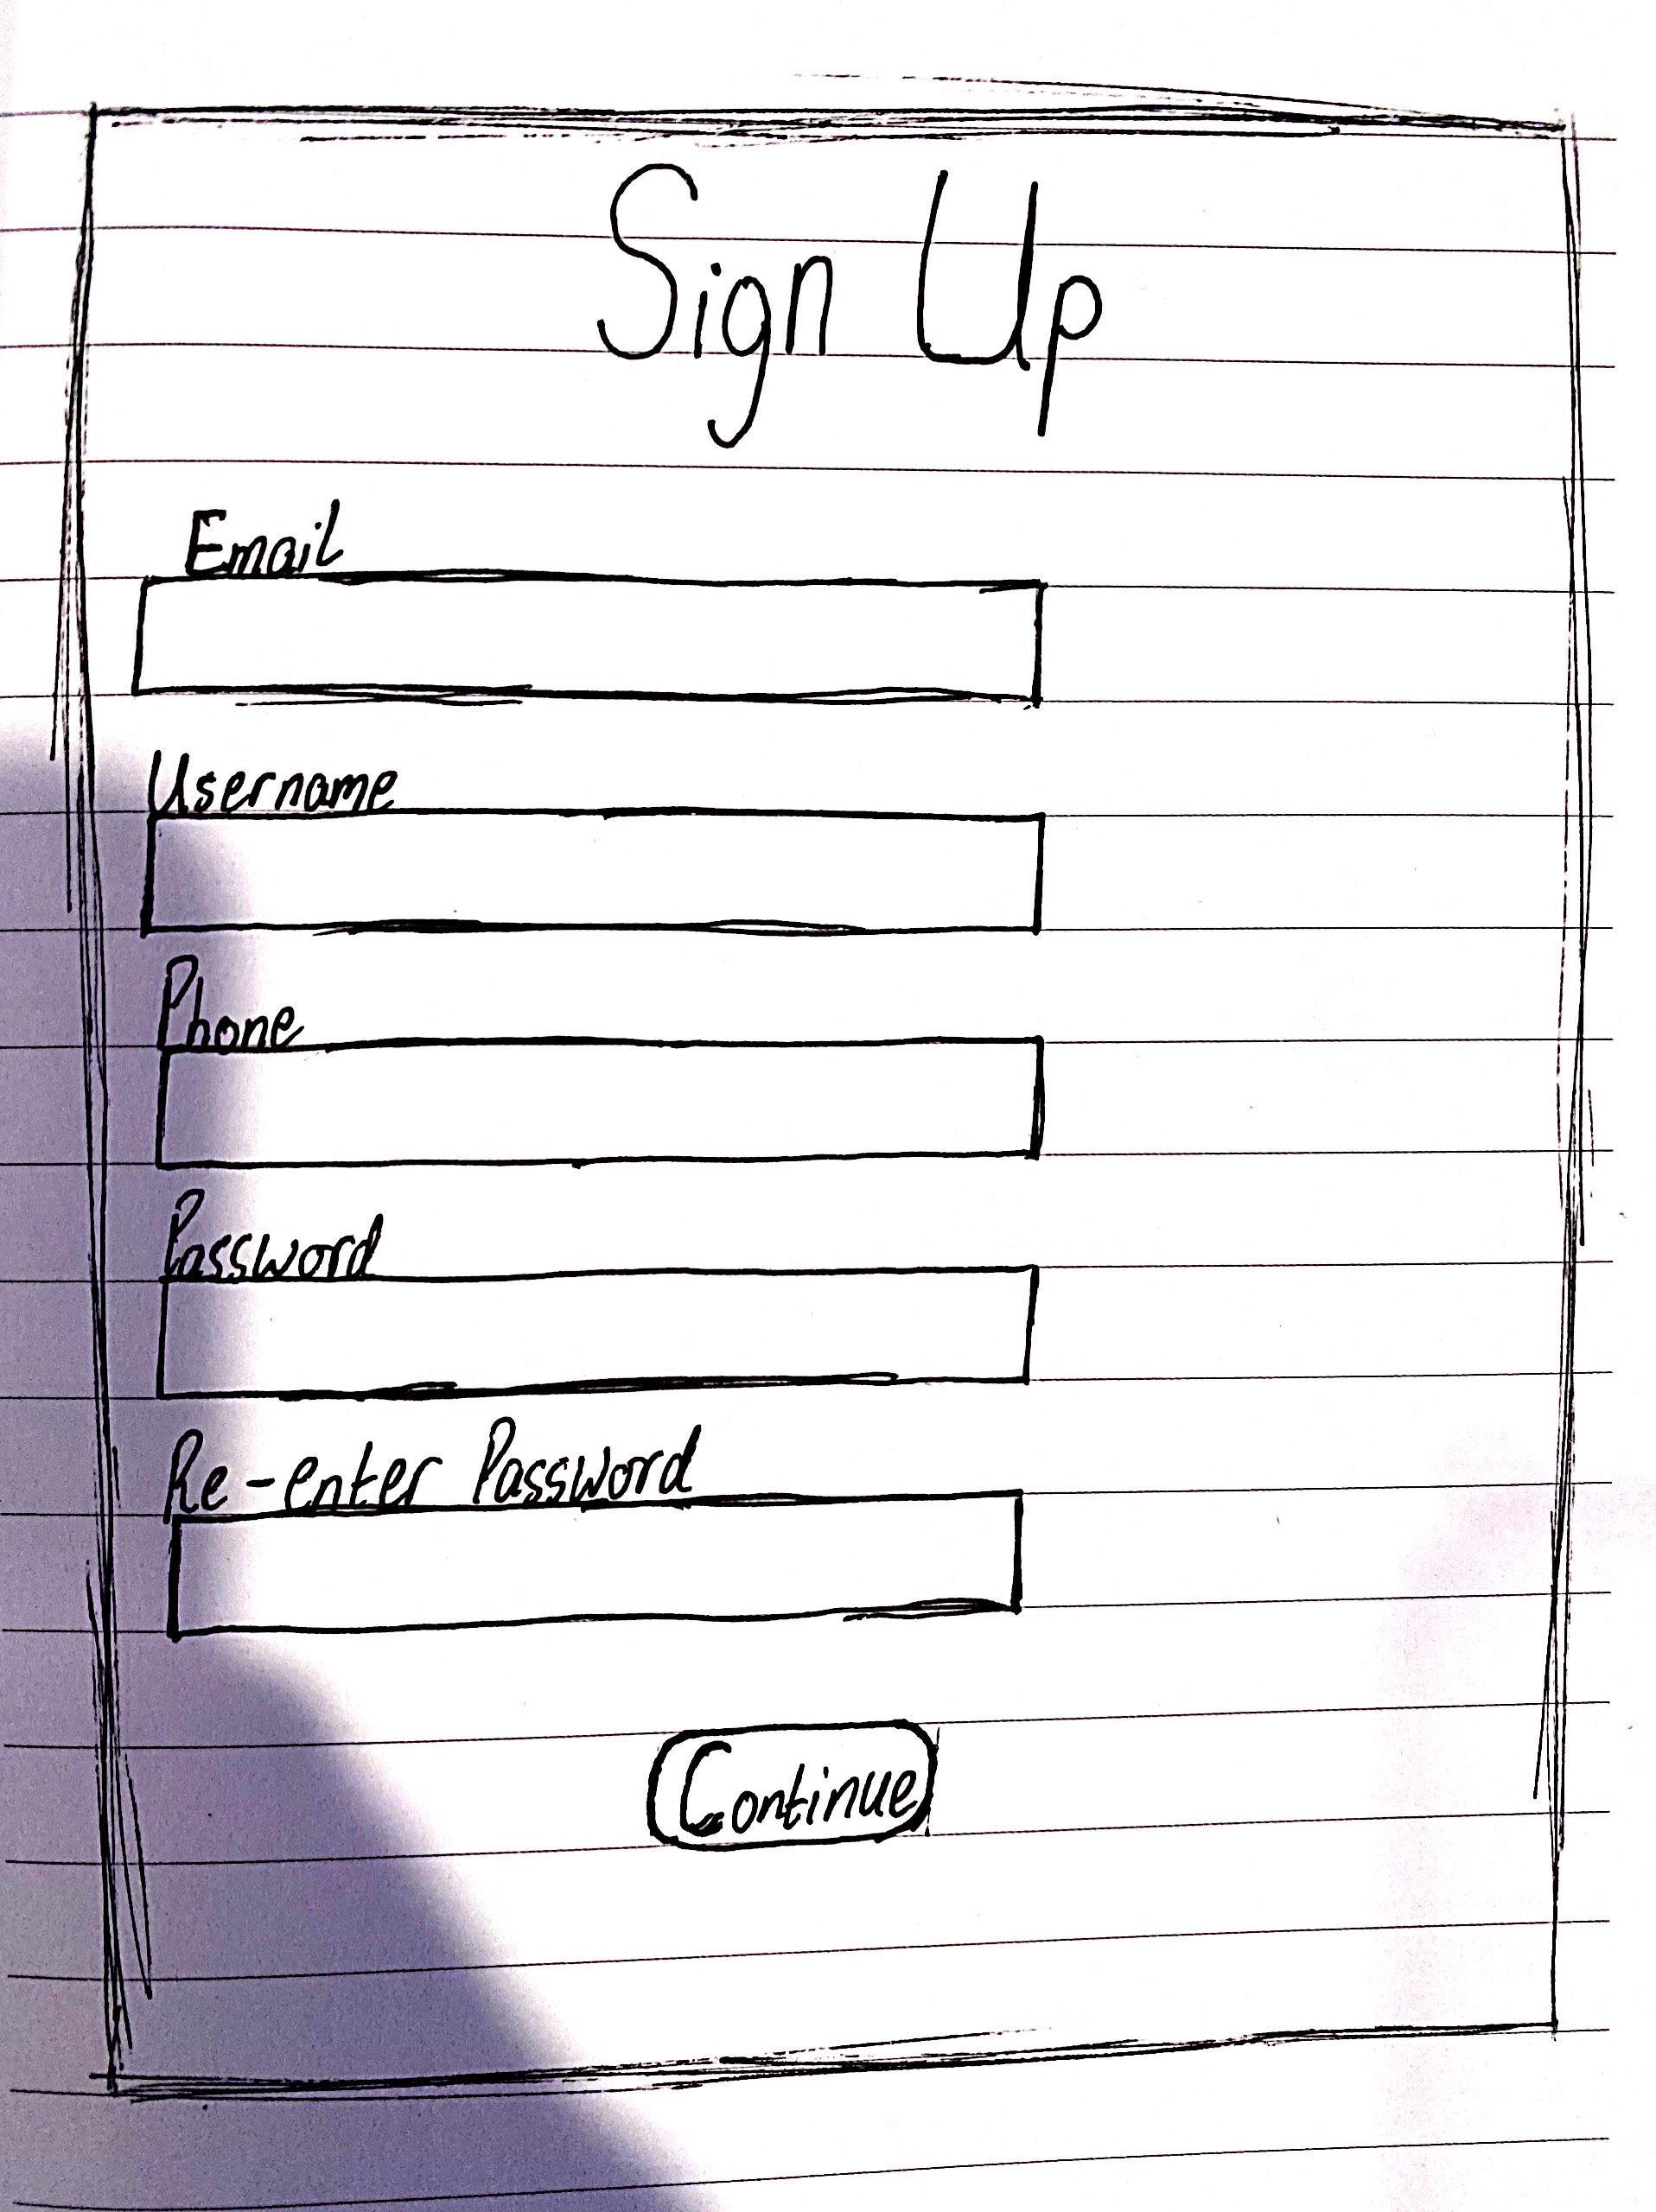 Sign Up
Email
Username
Phone
Password
Re-enter Password
Continue